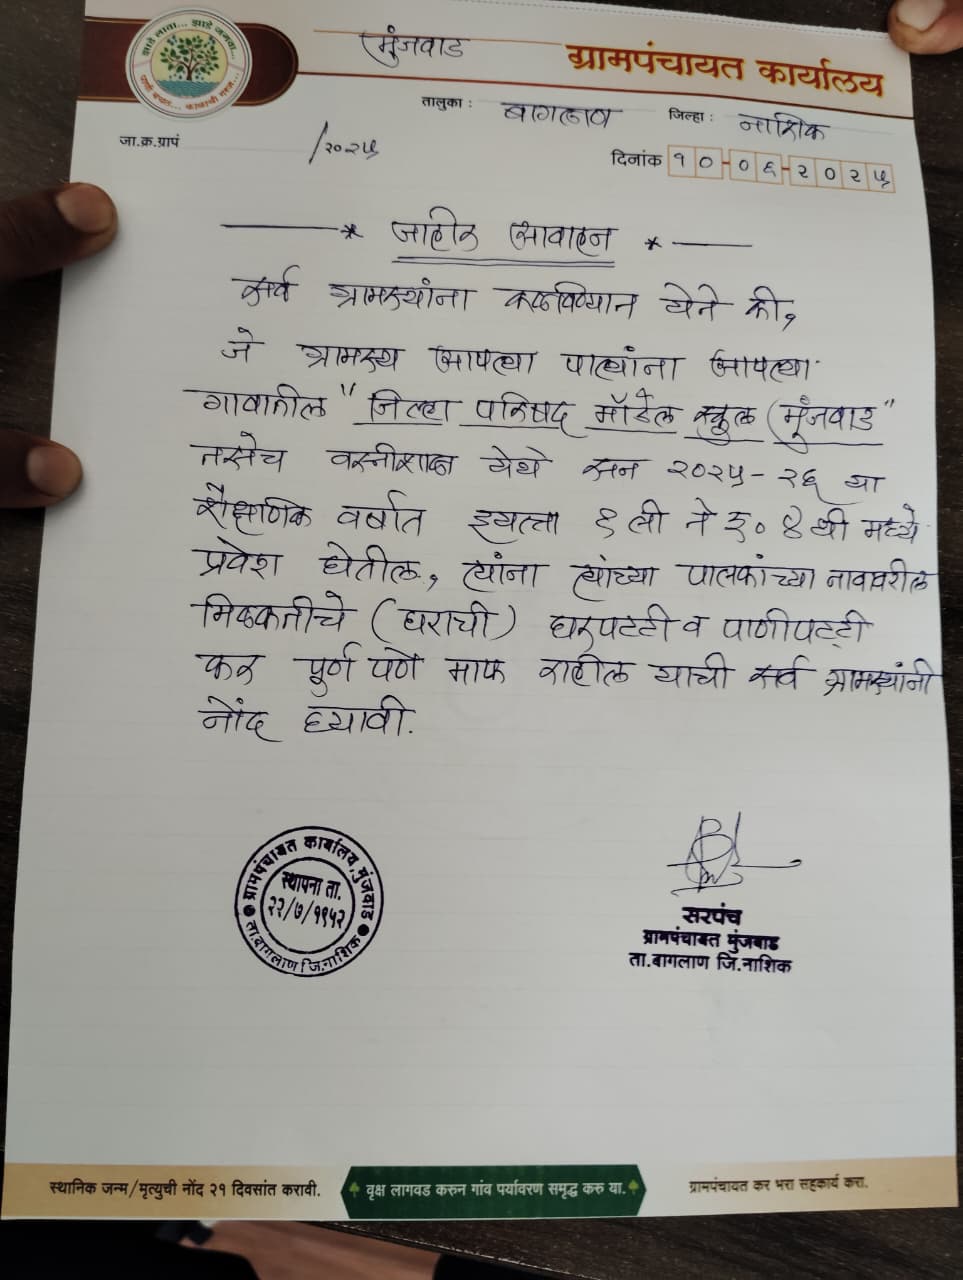 झाडे लावा... झाडे जगवा...
मुंजवाड ग्रामपंचायत कार्यालय
तालुका : बागलाण जिल्हा : नाशिक
जा.क्र.ग्रापं /२०२५
दिनांक १०-०६-२०२५
जाहीर आवाहन
सर्व ग्रामस्थांना कळविण्यात येते की,
जे ग्रामस्थ आपल्या पाल्यांना आपल्या
गावातील "जिल्हा परिषद मॉडेल स्कुल (मुंजवाड"
तसेच वस्तीशाळा येथे सन २०२५-२६ या
शैक्षणिक वर्षात इयत्ता १ ली ते इ. ४ थी मध्ये
प्रवेश घेतील, त्यांना त्यांच्या पालकांच्या नावावरील
मिळकतीचे (घराची) घरपट्टी व पाणीपट्टी
कर पुर्ण पणे माफ राहील याची सर्व ग्रामस्थांनी
नोंद घ्यावी.
ग्रामपंचायत कार्यालय, मुंजवाड
स्थापना ता.
२२/७/१९५२
ता.बागलाण जि.नाशिक
सरपंच
ग्रामपंचायत मुंजवाड
ता.बागलाण जि.नाशिक
स्थानिक जन्म/मृत्युची नोंद २१ दिवसांत करावी. वृक्ष लागवड करुन गांव पर्यावरण समृद्ध करु या. ग्रामपंचायत कर भरा सहकार्य करा.